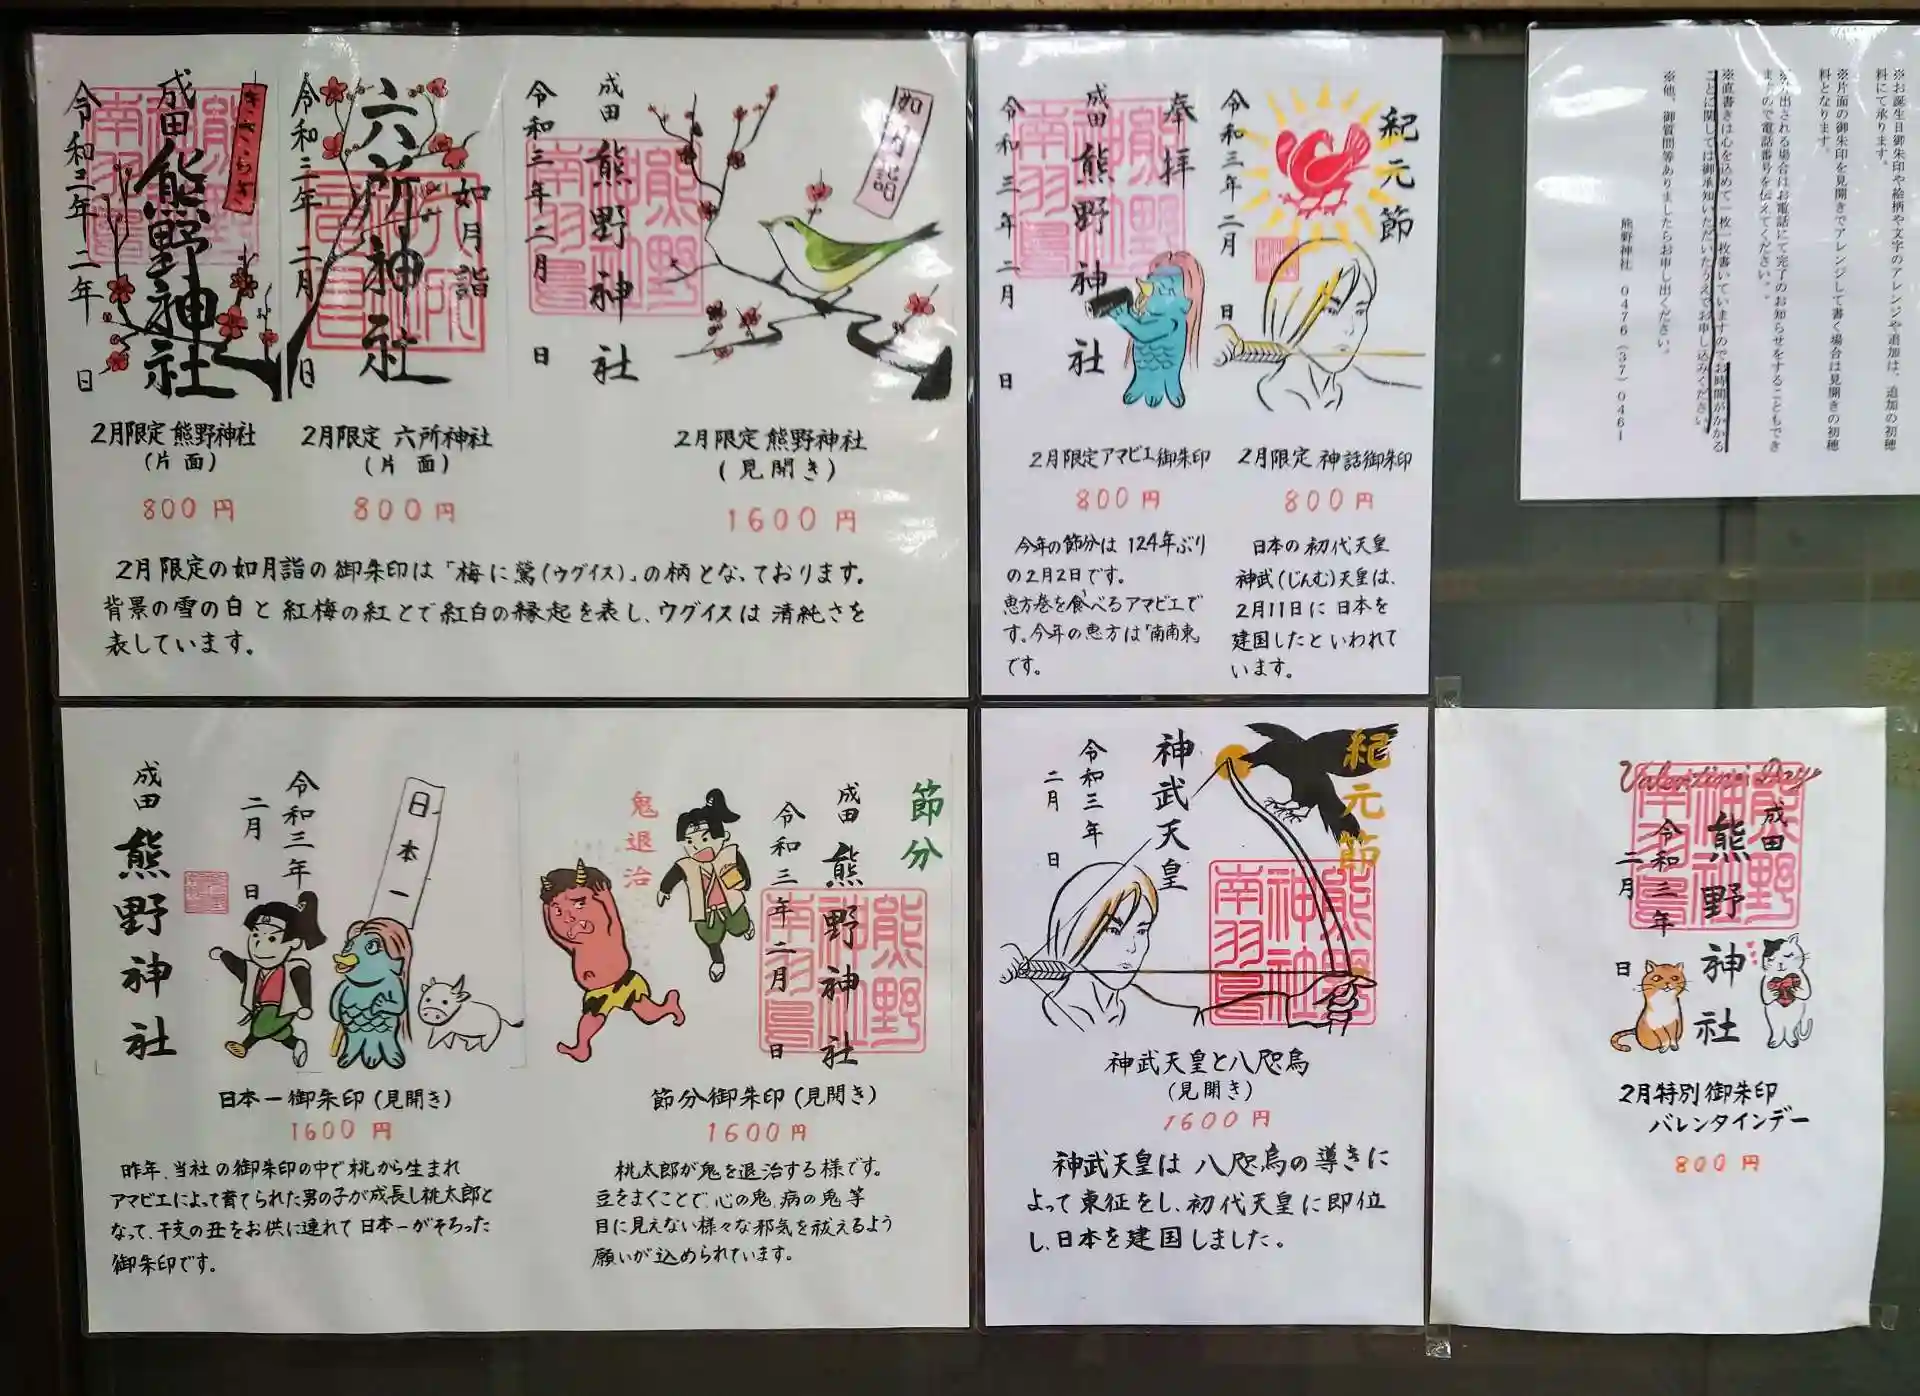 令和三年二年
日
成田
熊野神社
きさらぎ
令和三年二月
日
六所神社
如月詣
令和三年二月
日
成田
熊野神社
如月詣
2月限定 熊野神社
(片面)
800円
2月限定 六所神社
(片面)
800円
2月限定 熊野神社
(見開き)
1600円
2月限定の如月詣の御朱印は「梅に鶯(ウグイス)」の柄となっております。
背景の雪の白と紅梅の紅とで紅白の縁起を表し、ウグイスは清純さを
表しています。
奉拝
成田
熊野神社
令和三年二月
日
紀元節
令和三年二月
日
2月限定アマビエ御朱印
800円
今年の節分は124年ぶり
の2月2日です。
恵方巻を食べるアマビエで
す。今年の恵方は「南南東」
です。
2月限定 神話御朱印
800円
日本の初代天皇
神武(じんむ)天皇は、
2月11日に日本を
建国したといわれて
います。
※お誕生日御朱印や絵柄や文字のアレンジや追加は、追加の初穂
料にて承ります。
※片面の御朱印を見開きでアレンジして書く場合は見開きの初穂
料となります。
※外出される場合はお電話にて完了のお知らせをすることもでき
ますので電話番号を伝えてください。
※直書きは心を込めて一枚一枚書いていますのでお時間がかかる
ことに関しては御承知いただいたうえでお申し込みください。
※他、御質問等ありましたらお申し出ください。
熊野神社 0476(37)0461
成田
熊野神社
令和三年
二月
日
日本一
鬼退治
令和三年二月
日
成田
熊野神社
節分
日本一御朱印(見開き)
1600円
昨年、当社の御朱印の中で桃から生まれ
アマビエによって育てられた男の子が成長し桃太郎と
なって、干支の丑をお供に連れて日本一がそろった
御朱印です。
節分御朱印(見開き)
1600円
桃太郎が鬼を退治する様です。
豆をまくことで、心の鬼、病の鬼等
目に見えない様々な邪気を祓えるよう
願いが込められています。
紀元節
神武天皇
令和三年
二月
日
神武天皇と八咫烏
(見開き)
1600円
神武天皇は八咫烏の導きに
よって東征をし、初代天皇に即位
し、日本を建国しました。
Valentine's Day
成田
熊野神社
令和三年
二月
日
2月特別御朱印
バレンタインデー
800円